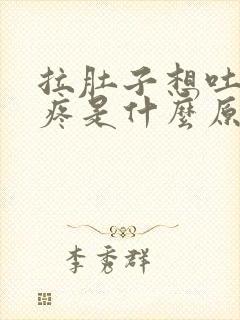 拉肚子想吐
疼是什麼原
李秀群